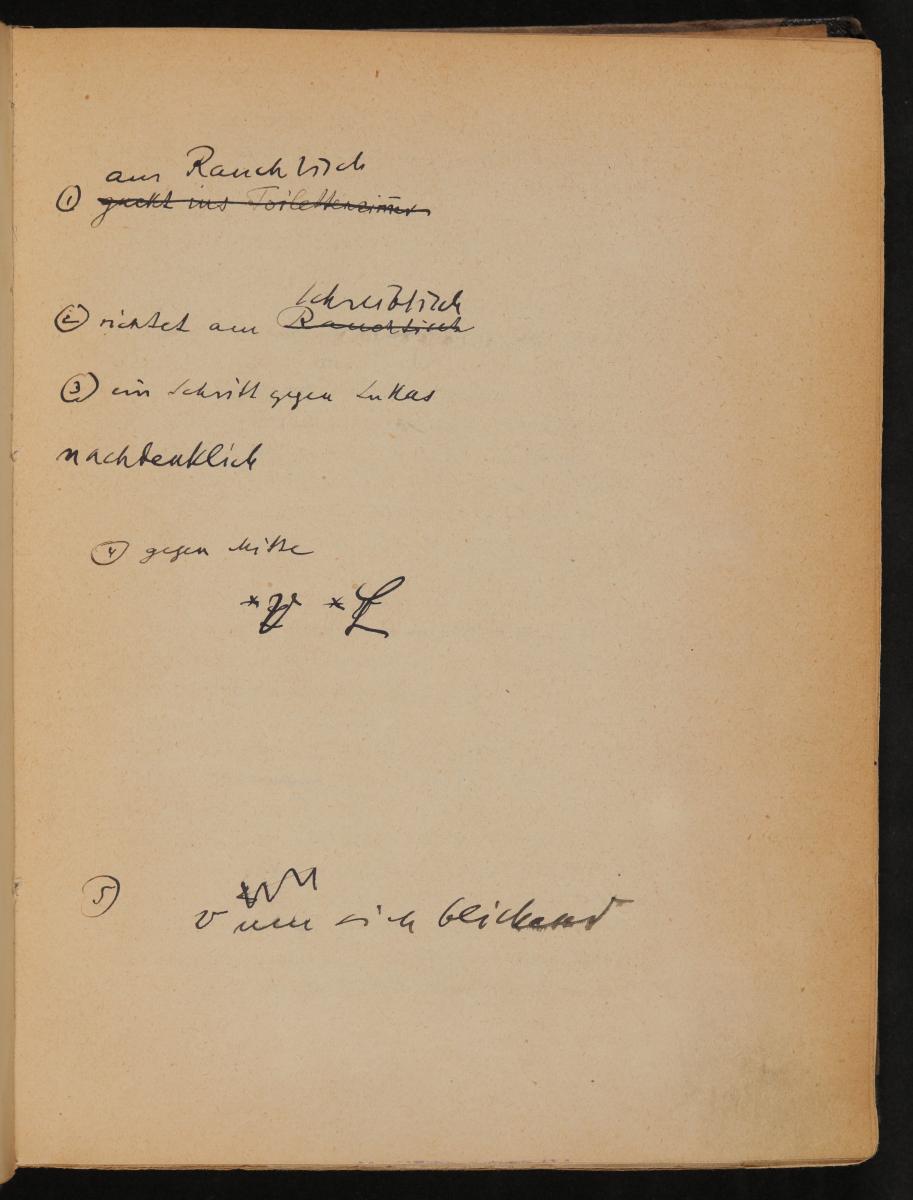 am Rauchtisch
① guckt ins Toilettenzimmer
Schreibtisch
② richtet am Rauchtisch
③ ein Schritt gegen Lukas
nachdenklich
④ gegen Mitte
⑤
um sich blickend